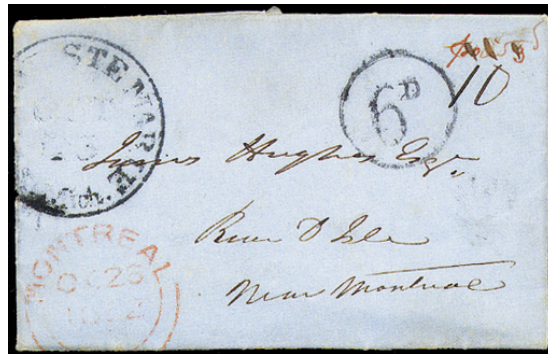 STE MARIE
Mich.
6D
paid
10
James Hughes Esqr
River D Isle
Near Montreal
MONTREAL
OC 26